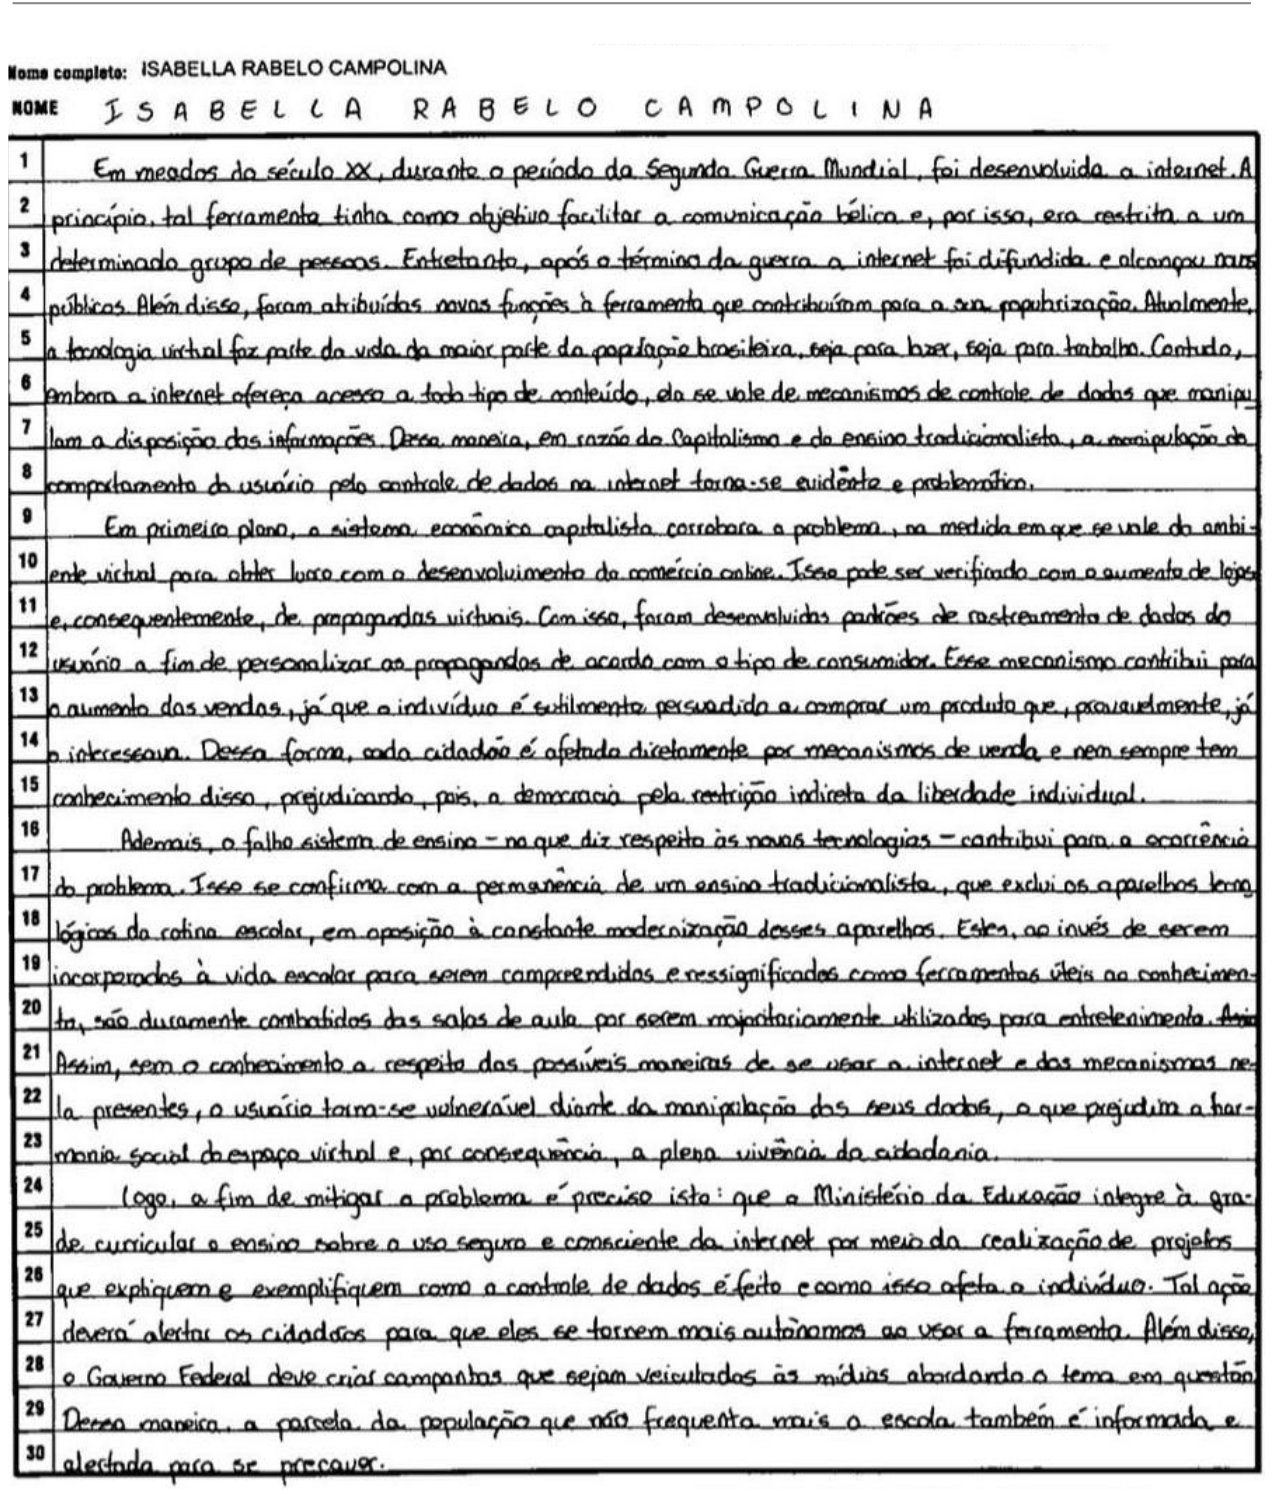 Nome completo: ISABELLA RABELO CAMPOLINA
NOME ISABELLA RABELO CAMPOLINA
1 Em meados do século XX, durante o período da Segunda Guerra Mundial, foi desenvolvida a internet. A
2 princípio, tal ferramenta tinha como objetivo facilitar a comunicação bélica e, por isso, era restrita a um
3 determinado grupo de pessoas. Entretanto, após o término da guerra a internet foi difundida e alcançou novos
4 públicos. Além disso, foram atribuídas novas funções à ferramenta que contribuíram para a sua popularização. Atualmente,
5 a tecnologia virtual faz parte da vida da maior parte da população brasileira, seja para lazer, seja para trabalho. Contudo,
6 embora a internet ofereça acesso a todo tipo de conteúdo, ela se vale de mecanismos de controle de dados que manipu
7 lam a disposição das informações. Dessa maneira, em razão do Capitalismo e do ensino tradicionalista, a manipulação do
8 comportamento do usuário pelo controle de dados na internet torna-se evidente e problemático.
9 Em primeiro plano, o sistema econômico capitalista corrobora o problema, na medida em que se vale do ambi-
10 ente virtual para obter lucro com o desenvolvimento do comércio online. Isso pode ser verificado com o aumento de lojas
11 e, consequentemente, de propagandas virtuais. Com isso, foram desenvolvidos padrões de rastreamento de dados do
12 usuário a fim de personalizar as propagandas de acordo com o tipo de consumidor. Esse mecanismo contribui para
13 o aumento das vendas, já que o indivíduo é sutilmente persuadido a comprar um produto que, provavelmente, já
14 o interessava. Dessa forma, cada cidadão é afetado diretamente por mecanismos de venda e nem sempre tem
15 conhecimento disso, prejudicando, pois, a democracia pela restrição indireta da liberdade individual.
16 Ademais, o falho sistema de ensino - no que diz respeito às novas tecnologias - contribui para a ocorrência
17 do problema. Isso se confirma com a permanência de um ensino tradicionalista, que exclui os aparelhos tecno
18 lógicos da rotina escolar, em oposição à constante modernização desses aparelhos. Estes, ao invés de serem
19 incorporados à vida escolar para serem compreendidos e ressignificados como ferramentas úteis ao conhecimen-
20 to, são duramente combatidos das salas de aula por serem majoritariamente utilizados para entretenimento.
21 Assim, sem o conhecimento a respeito das possíveis maneiras de se usar a internet e dos mecanismos ne-
22 la presentes, o usuário torna-se vulnerável diante da manipulação dos seus dados, o que prejudica a har-
23 monia social do espaço virtual e, por consequência, a plena vivência da cidadania.
24 Logo, a fim de mitigar o problema é preciso isto: que o Ministério da Educação integre à gra-
25 de curricular o ensino sobre o uso seguro e consciente da internet por meio da realização de projetos
26 que expliquem e exemplifiquem como o controle de dados é feito e como isso afeta o indivíduo. Tal ação
27 deverá alertar os cidadãos para que eles se tornem mais autônomos ao usar a ferramenta. Além disso,
28 o Governo Federal deve criar campanhas que sejam veiculadas às mídias abordando o tema em questão
29 Dessa maneira, a parcela da população que não frequenta mais a escola também é informada e
30 alertada para se precaver.